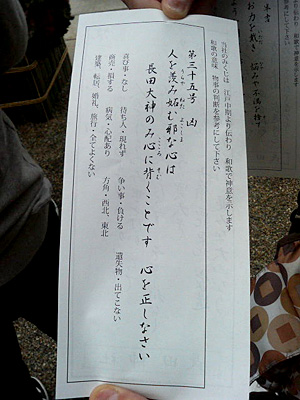 当社のみくじは、江戸中期より伝わり 和歌で神意を示します
和歌の意味、物事の判断を参考にして下さい
第三十五号 凶
人を羨み妬む邪な心は
長田大神のみ心に背くことです 心を正しなさい
喜び事・なし 待ち人・現れず 争い事・負ける 遺失物・出てこない
商売・損する 病気・心配あり 方角・西北、東北
建築、転居、婚礼、旅行・全てよくない